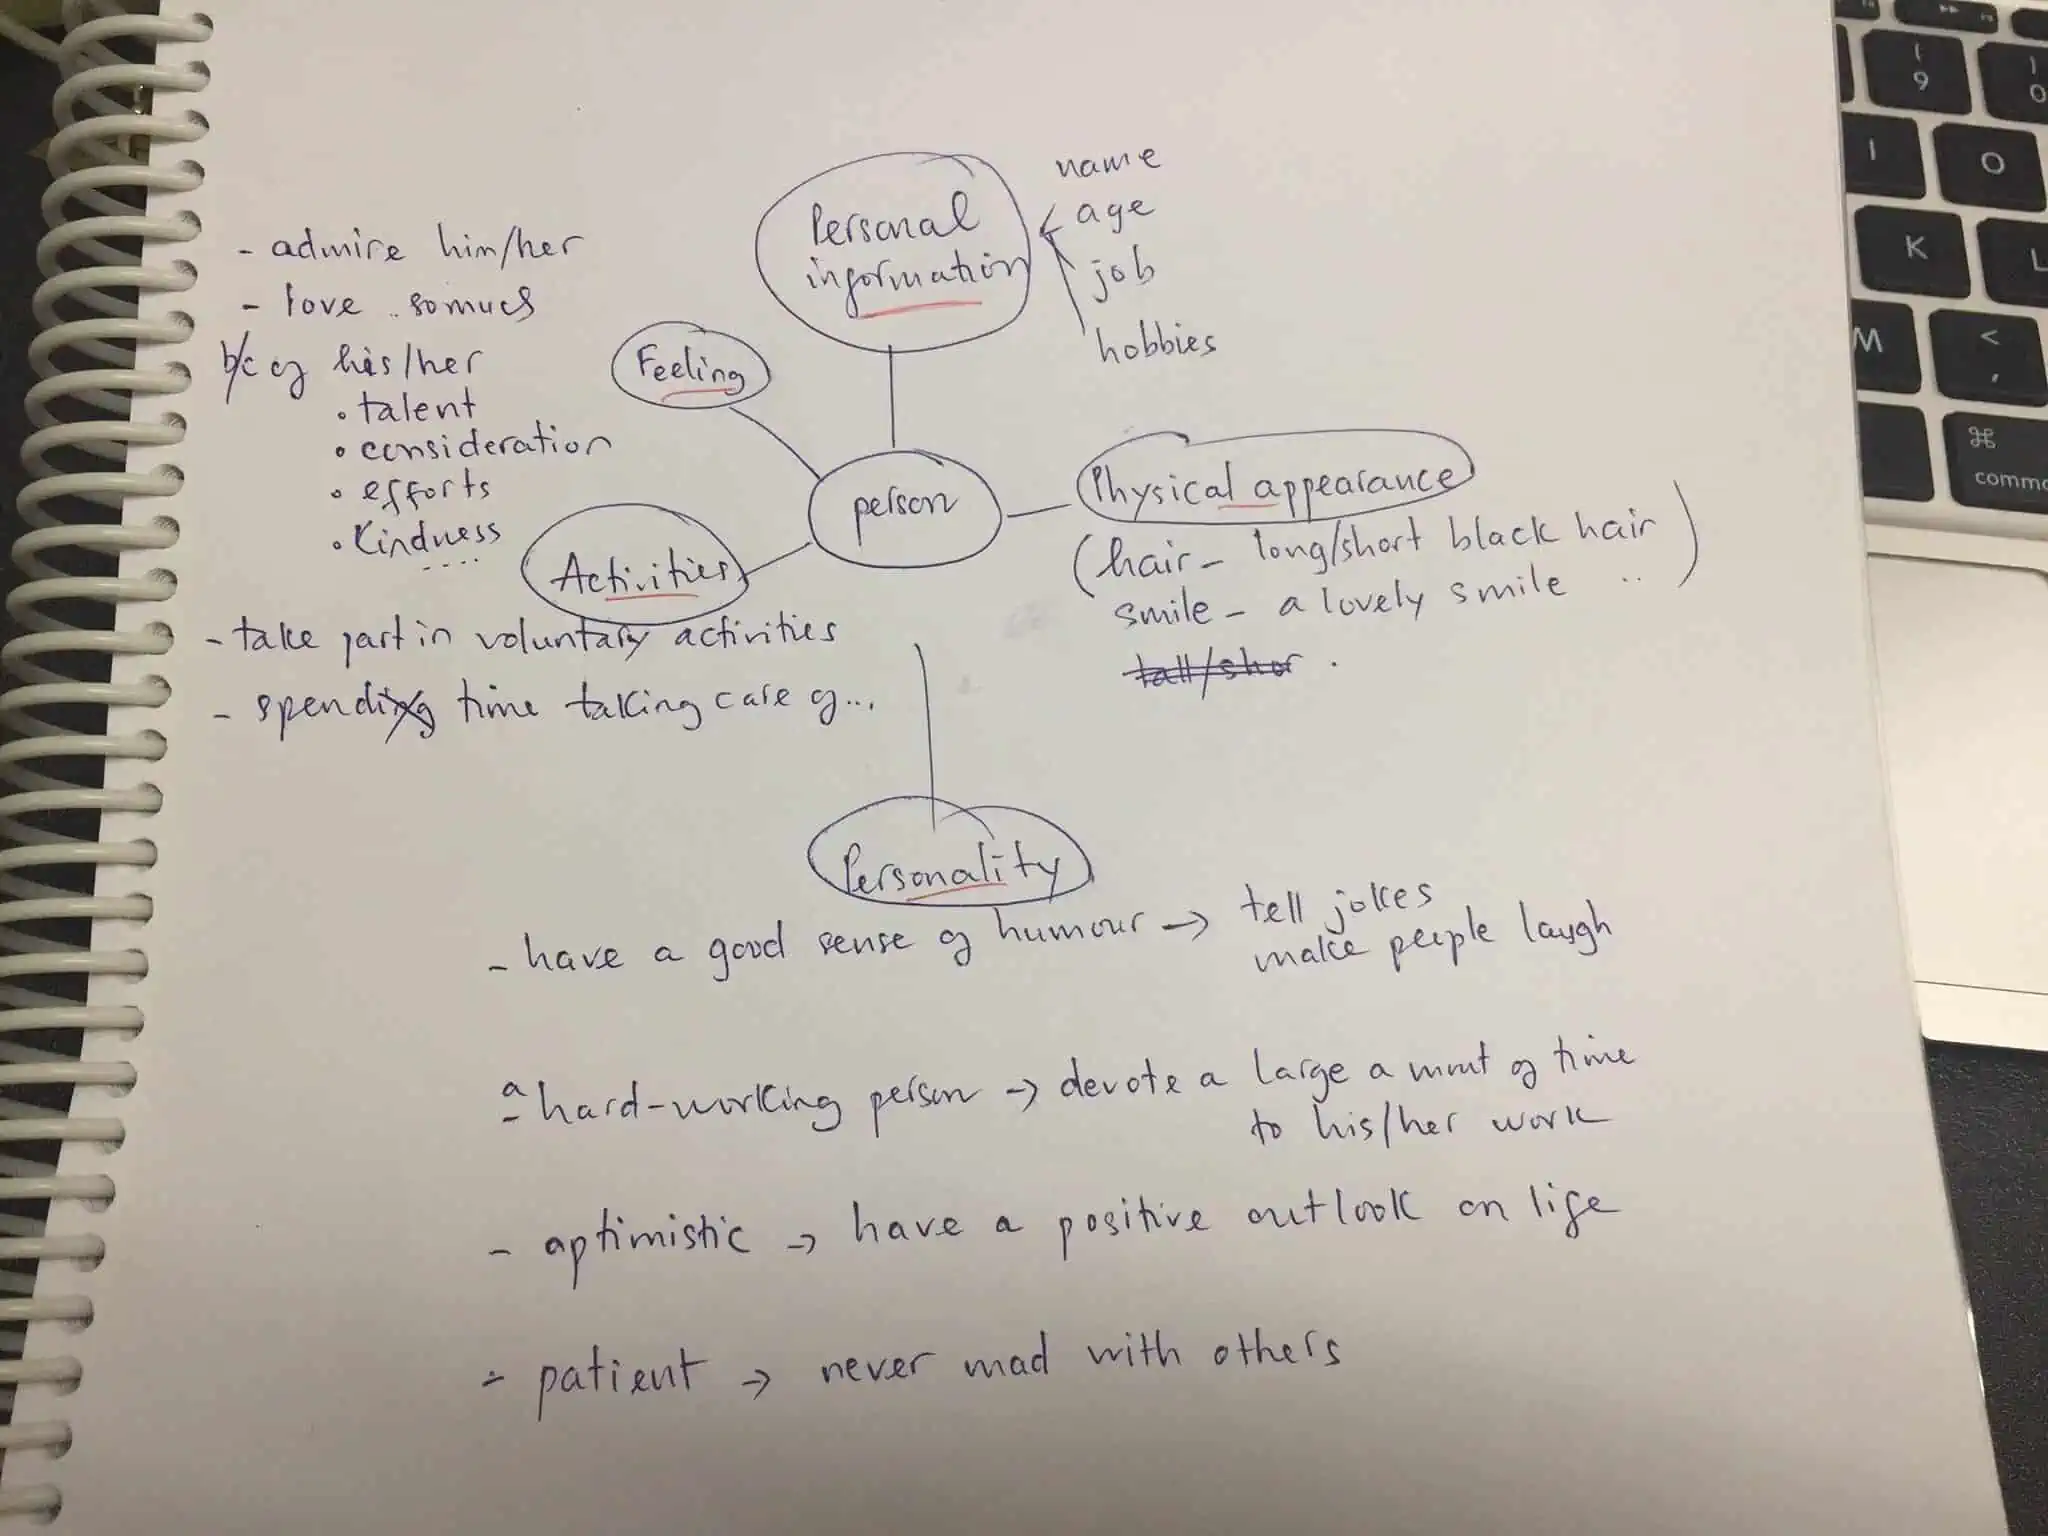 Personal
information
name
age
job
hobbies
Feeling
- admire him/her
- love .. so much
b/c of his/her
• talent
• consideration
• efforts
• kindness
....
person
Physical appearance
(hair - long/short black hair
smile - a lovely smile ..)
tall/shor .
Activities
- take part in voluntary activities
- spending time taking care of...
Personality
- have a good sense of humour → tell jokes
make people laugh
- a hard-working person → devote a large amout of time
to his/her work
- optimistic → have a positive outlook on life
- patient → never mad with others
( 9
) 0
I
O
K
L
M
< ,
⌘
comma